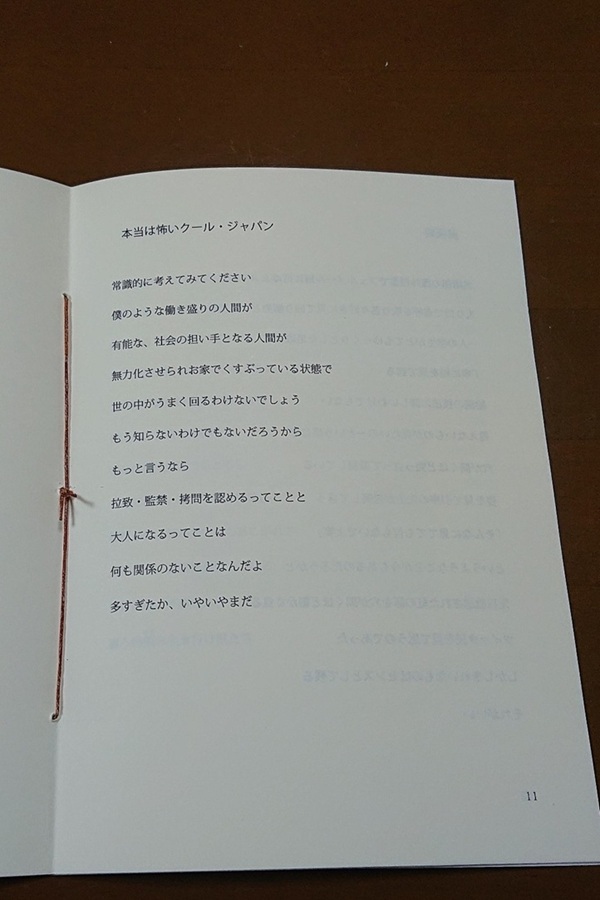 本当は怖いクール・ジャパン
常識的に考えてみてください
僕のような働き盛りの人間が
有能な、社会の担い手となる人間が
無力化させられお家でくすぶっている状態で
世の中がうまく回るわけないでしょう
もう知らないわけでもないだろうから
もっと言うなら
拉致・監禁・拷問を認めるってことと
大人になるってことは
何も関係のないことなんだよ
多すぎたか、いやいやまだ
11